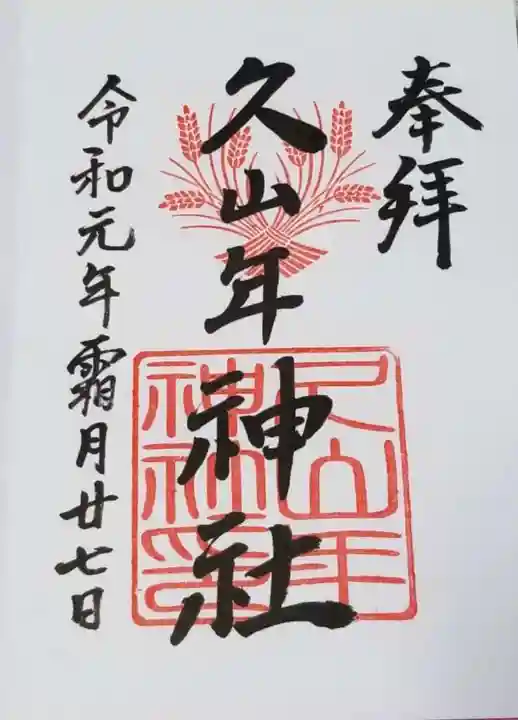 奉拝
久山年神社
久山年
神社印
令和元年霜月廿七日